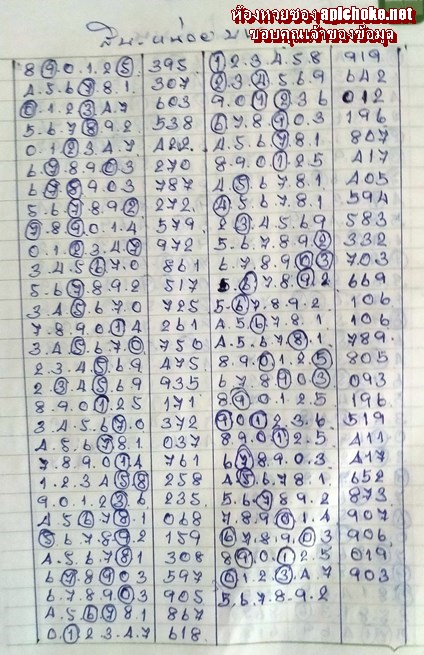 ห้องหวยซอง aplchoke.net
ขอบคุณเจ้าของข้อมูล
8.9.0.1.2.5 395
4.5.6.7.8.1 307
0.1.2.3.4.7 603
5.6.7.8.9.2 538
0.1.2.3.4.7 422
6.7.8.9.0.3 270
6.7.8.9.0.3 787
5.6.7.8.9.2 272
7.8.9.0.1.4 579
0.1.2.3.4.7 972
3.4.5.6.7.0 861
5.6.7.8.9.2 517
3.4.5.6.7.0 725
7.8.9.0.1.4 261
3.4.5.6.7.0 750
2.3.4.5.6.9 475
2.3.4.5.6.9 935
8.9.0.1.2.5 171
3.4.5.6.7.0 372
4.5.6.7.8.1 037
7.8.9.0.1.4 761
1.2.3.4.5.8 258
9.0.1.2.3.6 235
4.5.6.7.8.1 068
5.6.7.8.9.2 159
4.5.6.7.8.1 308
6.7.8.9.0.3 597
6.7.8.9.0.3 905
4.5.6.7.8.1 867
0.1.2.3.4.7 618
1.2.3.4.5.8 919
2.3.4.5.6.9 642
9.0.1.2.3.6 012
6.7.8.9.0.3 196
4.5.6.7.8.1 807
8.9.0.1.2.5 417
4.5.6.7.8.1 405
4.5.6.7.8.1 594
2.3.4.5.6.9 583
5.6.7.8.9.2 332
6.7.8.9.0.3 703
5.6.7.8.9.2 669
5.6.7.8.9.2 106
4.5.6.7.8.1 106
4.5.6.7.8.1 789
8.9.0.1.2.5 805
6.7.8.9.0.3 093
8.9.0.1.2.5 196
9.0.1.2.3.6 519
8.9.0.1.2.5 411
6.7.8.9.0.3 417
4.5.6.7.8.1 652
5.6.7.8.9.2 873
7.8.9.0.1.4 907
6.7.8.9.0.3 906
8.9.0.1.2.5 019
0.1.2.3.4.7 903
5.6.7.8.9.2